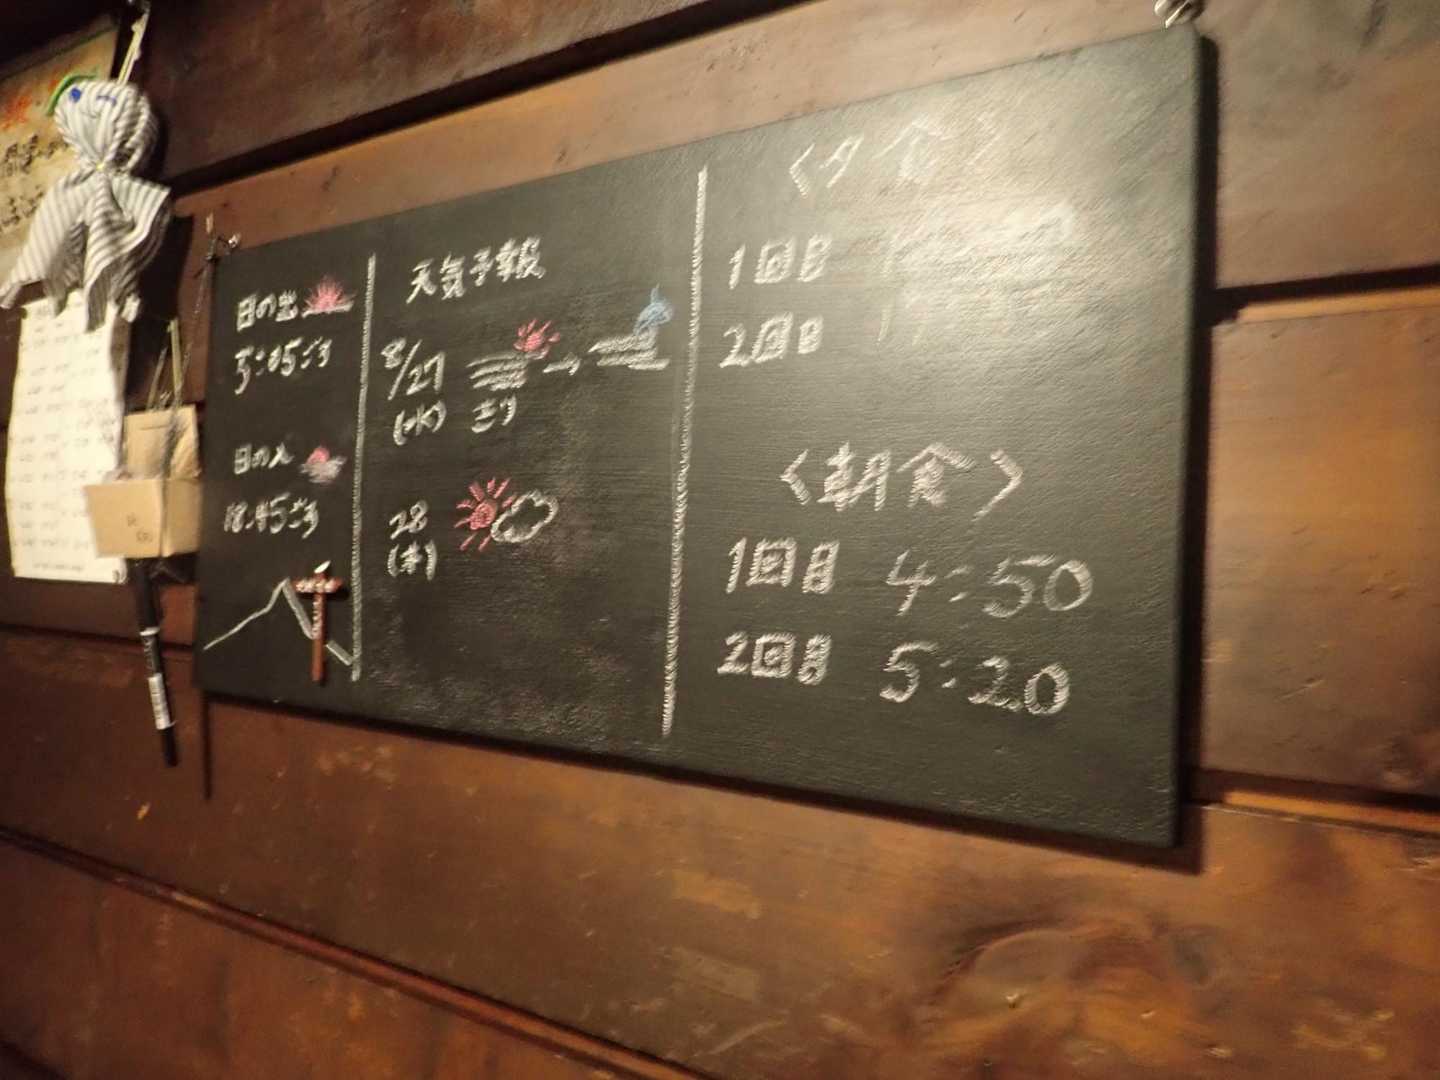 日の出
5:05ごろ
日の入
18:45ごろ
天気予報
8/27
(水)
きり
28
(木)
〈夕食〉
1回目
2回目
〈朝食〉
1回目 4:50
2回目 5:20